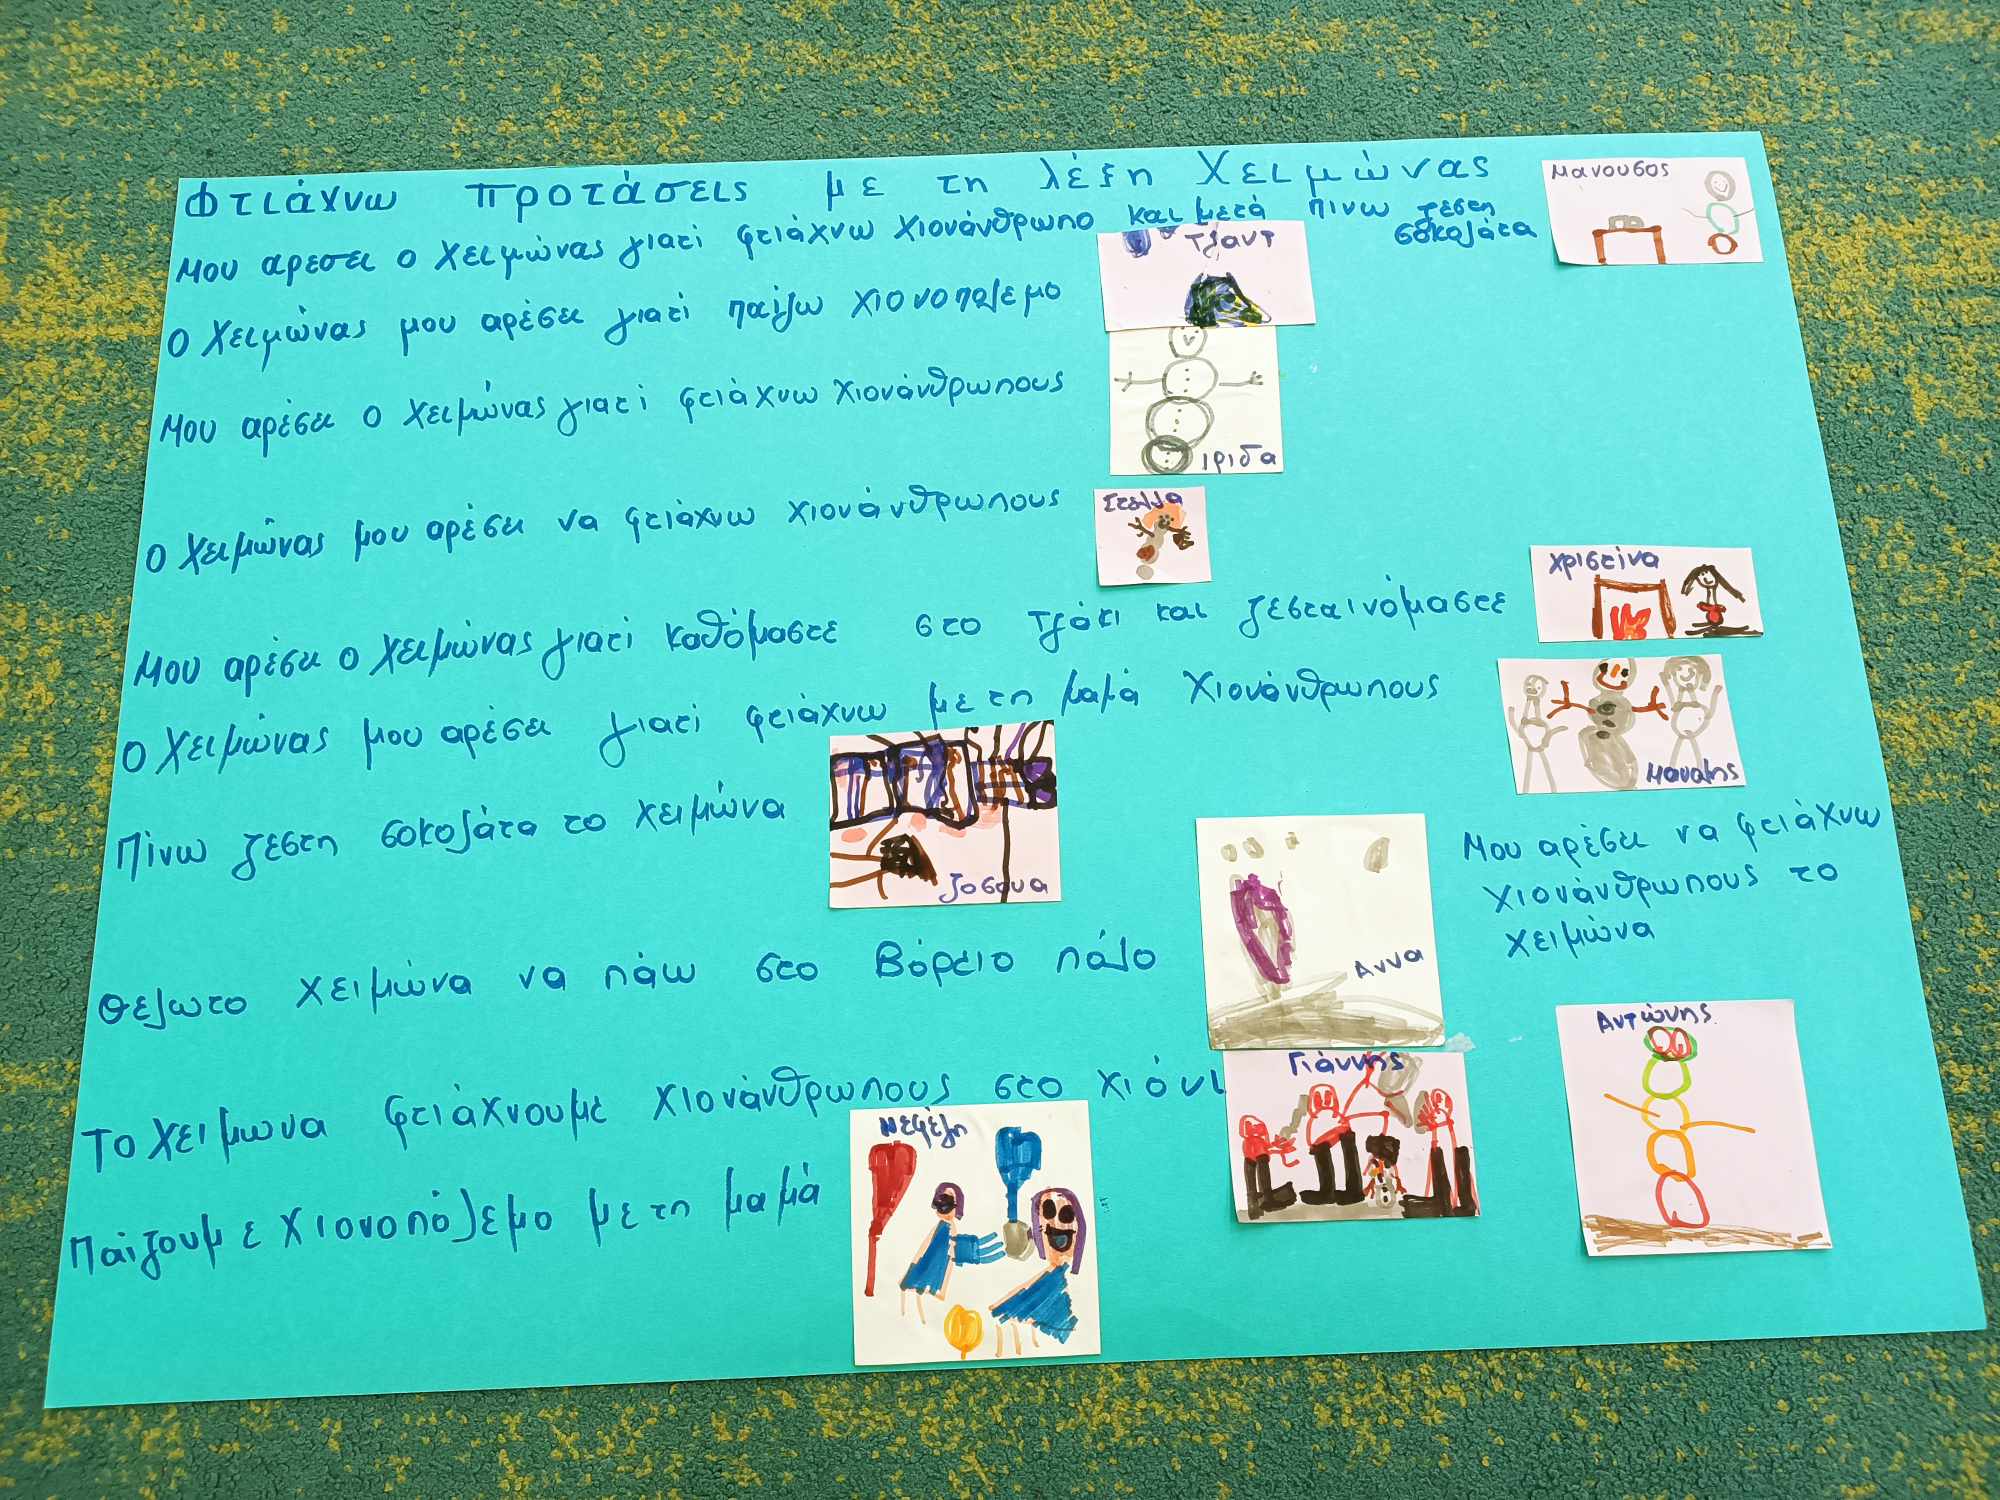 Φτιάχνω προτάσεις με τη λέξη Χειμώνας
Μου αρεσει ο Χειμώνας γιατί φτιάχνω χιονάνθρωπο και μετά πινω ζεστη σοκολάτα
Μανουσος
Ο Χειμώνας μου αρέσει γιατί παίζω χιονοπολεμο
Τζαντ
Μου αρέσει ο Χειμώνας γιατί φτιάχνω χιονάνθρωπους
ιριδα
Ο Χειμώνας μου αρέσει να φτιάχνω χιονάνθρωπους
Στελλα
Μου αρέσει ο Χειμώνας γιατί καθόμαστε στο τζάκι και ζεσταινόμαστε
Χριστίνα
Ο Χειμώνας μου αρέσει γιατί φτιάχνω με τη μαμά Χιονάνθρωπους
Μανωλης
Πίνω ζεστη σοκολάτα το χειμώνα
ζοσουα
Θελω το χειμώνα να πάω στο Βόρειο πόλο
Αννα
Μου αρέσει να φτιάχνω
χιονάνθρωπους το
χειμώνα
Αντώνης
Το χειμωνα φτιάχνουμε χιονάνθρωπους στο χιόνι
Γιάννης
Παίζουμε χιονοπόλεμο με τη μαμά
Νεφέλη